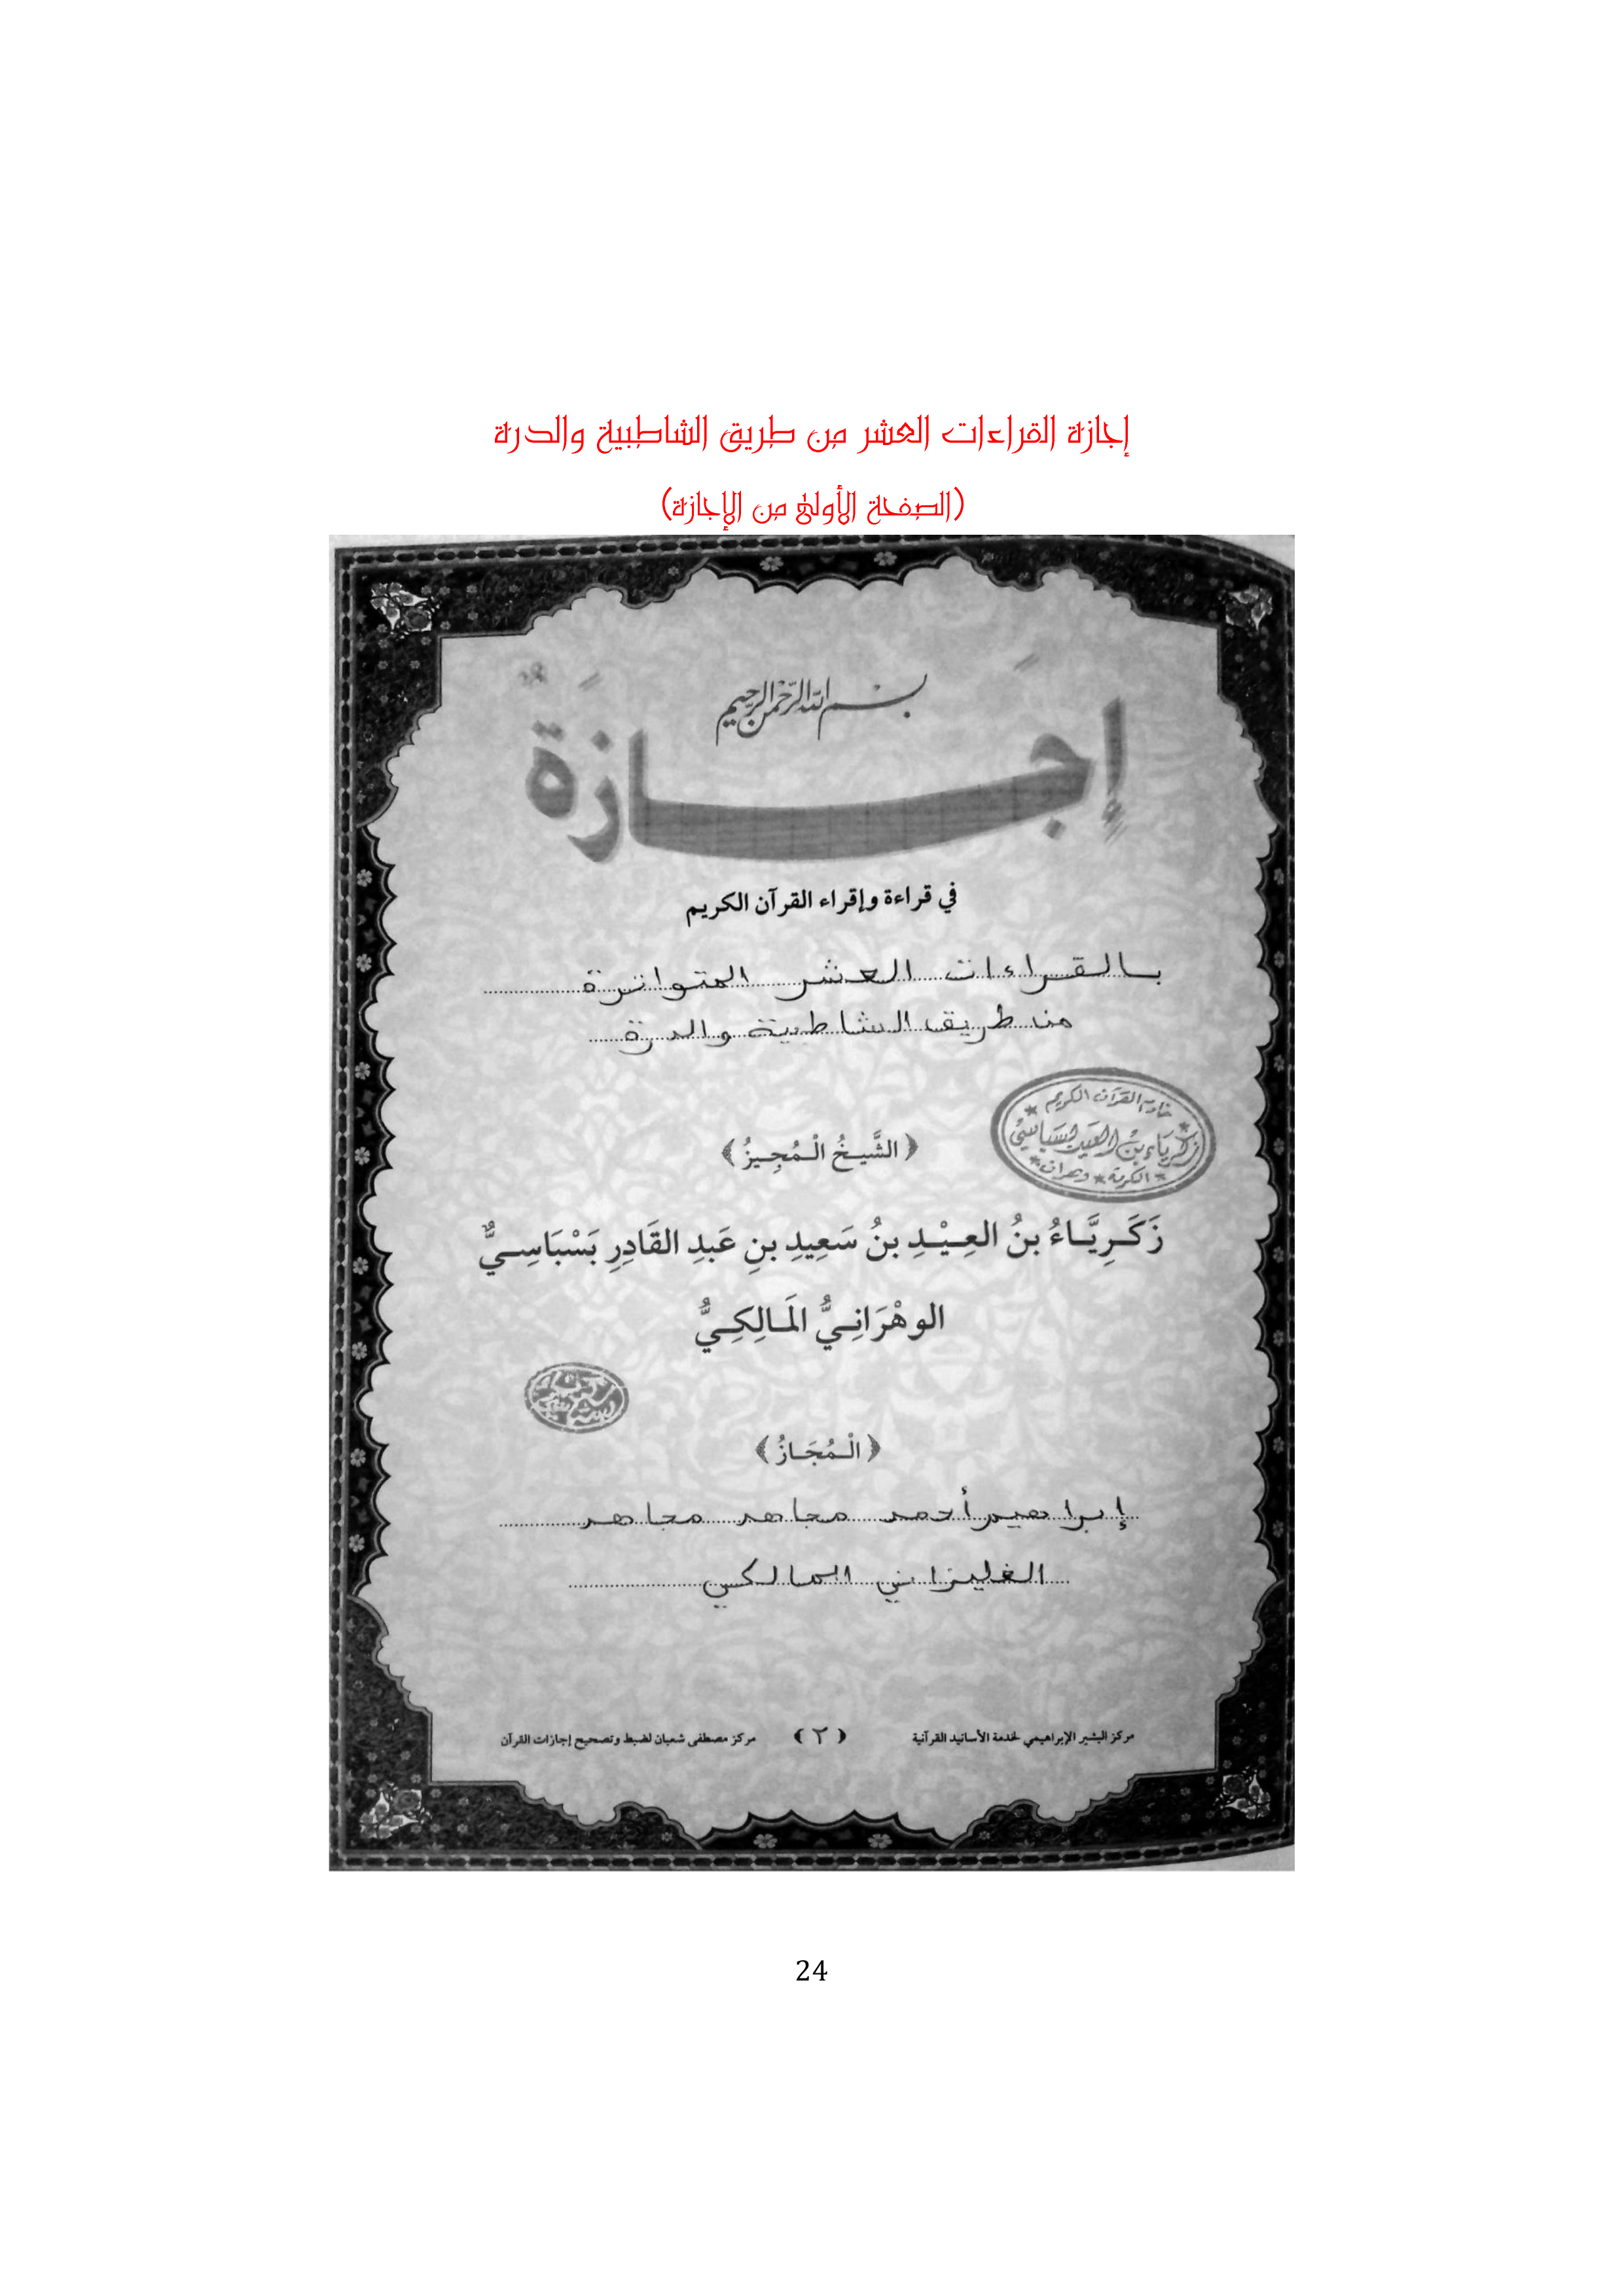 إجازة القراءات العشر من طريق الشاطبية والدرة
(الصفحة الأولى من الإجازة)
بسم الله الرحمن الرحيم
إِجَازَةٌ
في قراءة وإقراء القرآن الكريم
بالقراءات العشر المتواترة
من طريق الشاطبية والدرة
خادم القرآن الكريم
زكرياء بن العيد بسباسي
الكرمة وهران
﴿الشَّيخُ الْمُجِيزُ﴾
زَكَرِيَّاءُ بنُ العِيْدِ بنُ سَعِيدِ بنِ عَبدِ القَادِرِ بَسْبَاسِيُّ
الوهْرَانِيُّ المَالِكِيُّ
﴿الْمُجَازُ﴾
إبراهيم أحمد مجاهد مجاهد
الغليزاني المالكي
مركز البشير الإبراهيمي لخدمة الأسانيد القرآنية
﴿٢﴾
مركز مصطفى شعبان لضبط وتصحيح إجازات القرآن
24